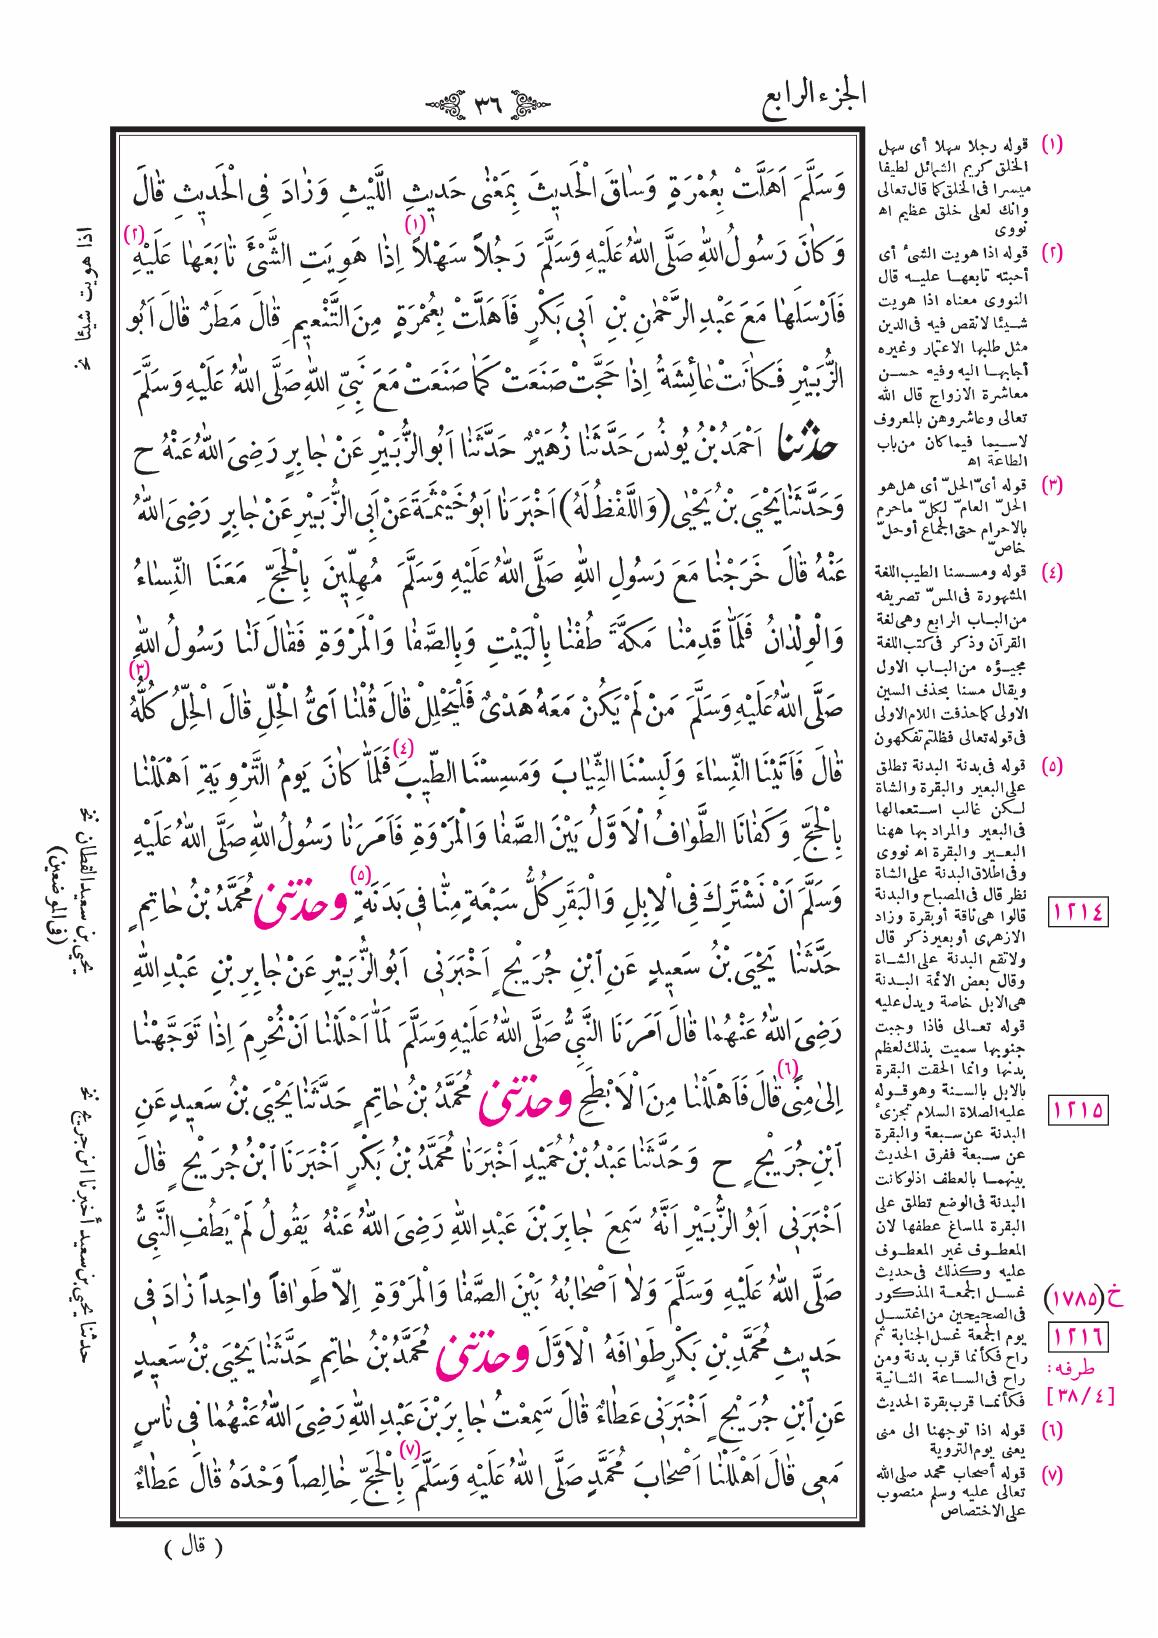 الجزء الرابع
٣٦
وَسَلَّمَ اَهَلَّتْ بِعُمْرَةٍ وَسَاقَ الْحَدِيثَ بِمَعْنٰى حَدِيثِ اللَّيْثِ وَزَادَ فِى الْحَدِيثِ قَالَ
وَكَانَ رَسُولُ اللّٰهِ صَلَّى اللّٰهُ عَلَيْهِ وَسَلَّمَ رَجُلاً سَهْلاً (١) اِذَا هَوِيَتِ الشَّىْءَ تَابَعَهَا عَلَيْهِ (٢)
فَاَرْسَلَهَا مَعَ عَبْدِ الرَّحْمٰنِ بْنِ اَبِى بَكْرٍ فَاَهَلَّتْ بِعُمْرَةٍ مِنَ التَّنْعِيمِ قَالَ مَطَرٌ قَالَ اَبُو
الزُّبَيْرِ فَكَانَتْ عَائِشَةُ اِذَا حَجَّتْ صَنَعَتْ كَمَا صَنَعَتْ مَعَ نَبِىِّ اللّٰهِ صَلَّى اللّٰهُ عَلَيْهِ وَسَلَّمَ
حدثنا اَحْمَدُ بْنُ يُونُسَ حَدَّثَنَا زُهَيْرٌ حَدَّثَنَا اَبُو الزُّبَيْرِ عَنْ جَابِرٍ رَضِىَ اللّٰهُ عَنْهُ ح
وَحَدَّثَنَا يَحْيَى بْنُ يَحْيٰى (وَاللَّفْظُ لَهُ) اَخْبَرَنَا اَبُو خَيْثَمَةَ عَنْ اَبِى الزُّبَيْرِ عَنْ جَابِرٍ رَضِىَ اللّٰهُ
عَنْهُ قَالَ خَرَجْنَا مَعَ رَسُولِ اللّٰهِ صَلَّى اللّٰهُ عَلَيْهِ وَسَلَّمَ مُهِلِّينَ بِالْحَجِّ مَعَنَا النِّسَاءُ
وَالْوِلْدَانُ فَلَمَّا قَدِمْنَا مَكَّةَ طُفْنَا بِالْبَيْتِ وَبِالصَّفَا وَالْمَرْوَةِ فَقَالَ لَنَا رَسُولُ اللّٰهِ
صَلَّى اللّٰهُ عَلَيْهِ وَسَلَّمَ مَنْ لَمْ يَكُنْ مَعَهُ هَدْىٌ فَلْيَحْلِلْ قَالَ قُلْنَا اَىُّ الْحِلِّ قَالَ الْحِلُّ كُلُّهُ (٣)
قَالَ فَاَتَيْنَا النِّسَاءَ وَلَبِسْنَا الثِّيَابَ وَمَسِسْنَا الطِّيبَ (٤) فَلَمَّا كَانَ يَوْمُ التَّرْوِيَةِ اَهْلَلْنَا
بِالْحَجِّ وَكَفَانَا الطَّوَافُ الْاَوَّلُ بَيْنَ الصَّفَا وَالْمَرْوَةِ فَاَمَرَنَا رَسُولُ اللّٰهِ صَلَّى اللّٰهُ عَلَيْهِ
وَسَلَّمَ اَنْ نَشْتَرِكَ فِى الْاِبِلِ وَالْبَقَرِ كُلُّ سَبْعَةٍ مِنَّا فِى بَدَنَةٍ (٥) وحدثنى مُحَمَّدُ بْنُ حَاتِمٍ
حَدَّثَنَا يَحْيَى بْنُ سَعِيدٍ عَنِ ابْنِ جُرَيْجٍ اَخْبَرَنِى اَبُو الزُّبَيْرِ عَنْ جَابِرِ بْنِ عَبْدِ اللّٰهِ
رَضِىَ اللّٰهُ عَنْهُمَا قَالَ اَمَرَنَا النَّبِىُّ صَلَّى اللّٰهُ عَلَيْهِ وَسَلَّمَ لَمَّا اَحْلَلْنَا اَنْ نُحْرِمَ اِذَا تَوَجَّهْنَا
اِلٰى مِنًى (٦) قَالَ فَاَهْلَلْنَا مِنَ الْاَبْطَحِ وحدثنى مُحَمَّدُ بْنُ حَاتِمٍ حَدَّثَنَا يَحْيَى بْنُ سَعِيدٍ عَنِ
ابْنِ جُرَيْجٍ ح وَحَدَّثَنَا عَبْدُ بْنُ حُمَيْدٍ اَخْبَرَنَا مُحَمَّدُ بْنُ بَكْرٍ اَخْبَرَنَا ابْنُ جُرَيْجٍ قَالَ
اَخْبَرَنِى اَبُو الزُّبَيْرِ اَنَّهُ سَمِعَ جَابِرَ بْنَ عَبْدِ اللّٰهِ رَضِىَ اللّٰهُ عَنْهُ يَقُولُ لَمْ يَطُفِ النَّبِىُّ
صَلَّى اللّٰهُ عَلَيْهِ وَسَلَّمَ وَلَا اَصْحَابُهُ بَيْنَ الصَّفَا وَالْمَرْوَةِ اِلَّا طَوَافاً وَاحِداً زَادَ فِى
حَدِيثِ مُحَمَّدِ بْنِ بَكْرٍ طَوَافَهُ الْاَوَّلَ وحدثنى مُحَمَّدُ بْنُ حَاتِمٍ حَدَّثَنَا يَحْيَى بْنُ سَعِيدٍ
عَنِ ابْنِ جُرَيْجٍ اَخْبَرَنِى عَطَاءٌ قَالَ سَمِعْتُ جَابِرَ بْنَ عَبْدِ اللّٰهِ رَضِىَ اللّٰهُ عَنْهُمَا فِى نَاسٍ
مَعِى قَالَ اَهْلَلْنَا اَصْحَابَ مُحَمَّدٍ صَلَّى اللّٰهُ عَلَيْهِ وَسَلَّمَ (٧) بِالْحَجِّ خَالِصاً وَحْدَهُ قَالَ عَطَاءٌ
( قال )
(١) قوله رجلا سهلا أى سهل
الخلق كريم الشمائل لطيفا
ميسرا فى الخلق كما قال تعالى
وانك لعلى خلق عظيم اه
نووى
(٢) قوله اذا هويت الشئ أى
أحبته تابعها عليه قال
النووى معناه اذا هويت
شيئا لا نقص فيه فى الدين
مثل طلبها الاعتمار وغيره
أجابها اليه وفيه حسن
معاشرة الازواج قال الله
تعالى وعاشروهن بالمعروف
لاسيما فيما كان من باب
الطاعة اه
(٣) قوله أىّ الحلّ أى هل هو
الحلّ العامّ لكلّ ماحرم
بالاحرام حتى الجماع أوحلّ
خاصّ
(٤) قوله ومسسنا الطيب اللغة
المشهورة فى المسّ تصريفه
من الباب الرابع وهى لغة
القرآن وذكر فى كتب اللغة
مجيؤه من الباب الاول
ويقال مسنا بحذف السين
الاولى كما حذفت اللام الاولى
فى قوله تعالى فظلتم تفكهون
(٥) قوله فى بدنة البدنة تطلق
على البعير والبقرة والشاة
لكن غالب استعمالها
فى البعير والمراد بها ههنا
البعير والبقرة اه نووى
وفى اطلاق البدنة على الشاة
نظر قال فى المصباح والبدنة
قالوا هى ناقة أوبقرة وزاد
الازهرى أوبعير ذكر قال
ولاتقع البدنة على الشاة
وقال بعض الائمة البدنة
هى الابل خاصة ويدل عليه
قوله تعالى فاذا وجبت
جنوبها سميت بذلك لعظم
بدنها وانما الحقت البقرة
بالابل بالسنة وهو قوله
عليه الصلاة السلام تجزئ
البدنة عن سبعة والبقرة
عن سبعة ففرق الحديث
بينهما بالعطف اذ لوكانت
البدنة فى الوضع تطلق على
البقرة لماساغ عطفها لان
المعطوف غير المعطوف
عليه وكذلك فى حديث
غسل الجمعة المذكور
فى الصحيحين من اغتسل
يوم الجمعة غسل الجنابة ثم
راح فكأنما قرب بدنة ومن
راح فى الساعة الثانية
فكأنما قرب بقرة الحديث
(٦) قوله اذا توجهنا الى منى
يعنى يوم التروية
(٧) قوله أصحاب محمد صلى الله
تعالى عليه وسلم منصوب
على الاختصاص
١٢١٤
١٢١٥
خ (١٧٨٥)
١٢١٦
طرفه:
[٣٨/٤]
اذا هويت شيئا نخ
يحيى بن سعيد القطان نخ
(فى الموضعين)
حدثنا يحيى بن سعيد أخبرنا ابن جريج نخ